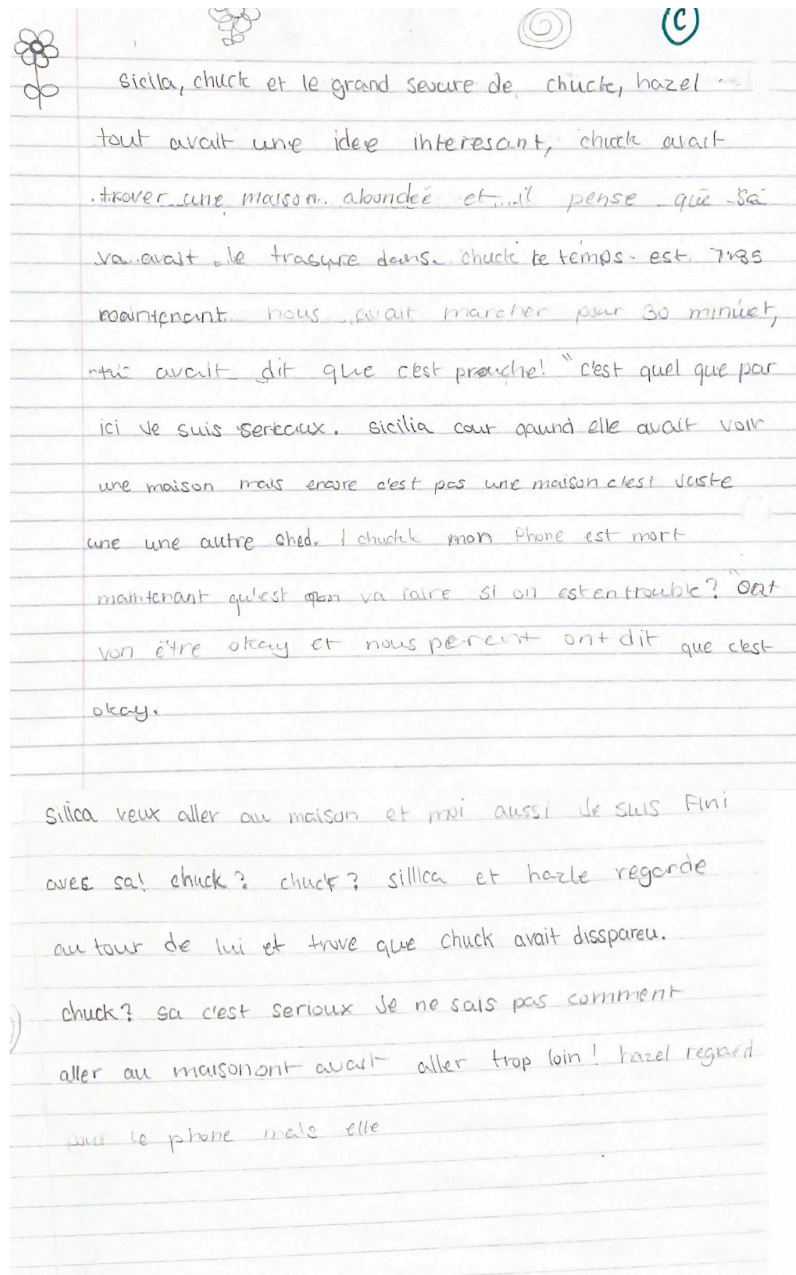 C
Sicila, chuck et le grand sevure de chuck, hazel
tout avait une idee interesant, chuck avait
trover une maison abondeé et il pense que sa
va avait le trasure dans. chuck le temps est 7:35
maintenant nous avait marcher pour 30 minuet,
avait dit que c'est prouche! "c'est quel que par
ici Je suis serieaux. sicilia cour qaund elle avait voir
une maison mais encore c'est pas une maison c'est Juste
une une autre shed. chuck mon Phone est mort
maintenant qu'est qon va faire si on est en trouble? "
von être okay et nous perent ont dit que c'est
okay.
Silica veux aller au maison et moi aussi Je suis Fini
avec sa! chuck? chuck? sillica et hazle regarde
au tour de lui et trove que chuck avait disspareu.
chuck? sa c'est serioux Je ne sais pas comment
aller au maisonont avait aller trop loin! hazel regard
pour le phone mais elle